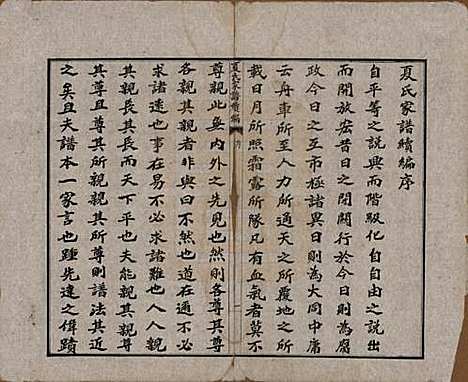 夏氏家譜續編序
自平等之說興而階級化自自由之說出
而開放宏昔日之閉關行於今日則為腐
政今日之互市極諸異日則為大同中庸
云舟車所至人力所通天之所覆地之所
載日月所照霜露所隊凡有血氣者莫不
夏氏家譜續編 序
尊親此無內外之先見也然則各尊其尊
各親其親者非與曰不然也道在通不必
求諸遠也事在易不必求諸難也人人親
其親長其長而天下平也夫能親其親尊
其尊且尊其所親親其所尊則譜法其近
之矣且夫譜本一家言也踵先達之偉蹟